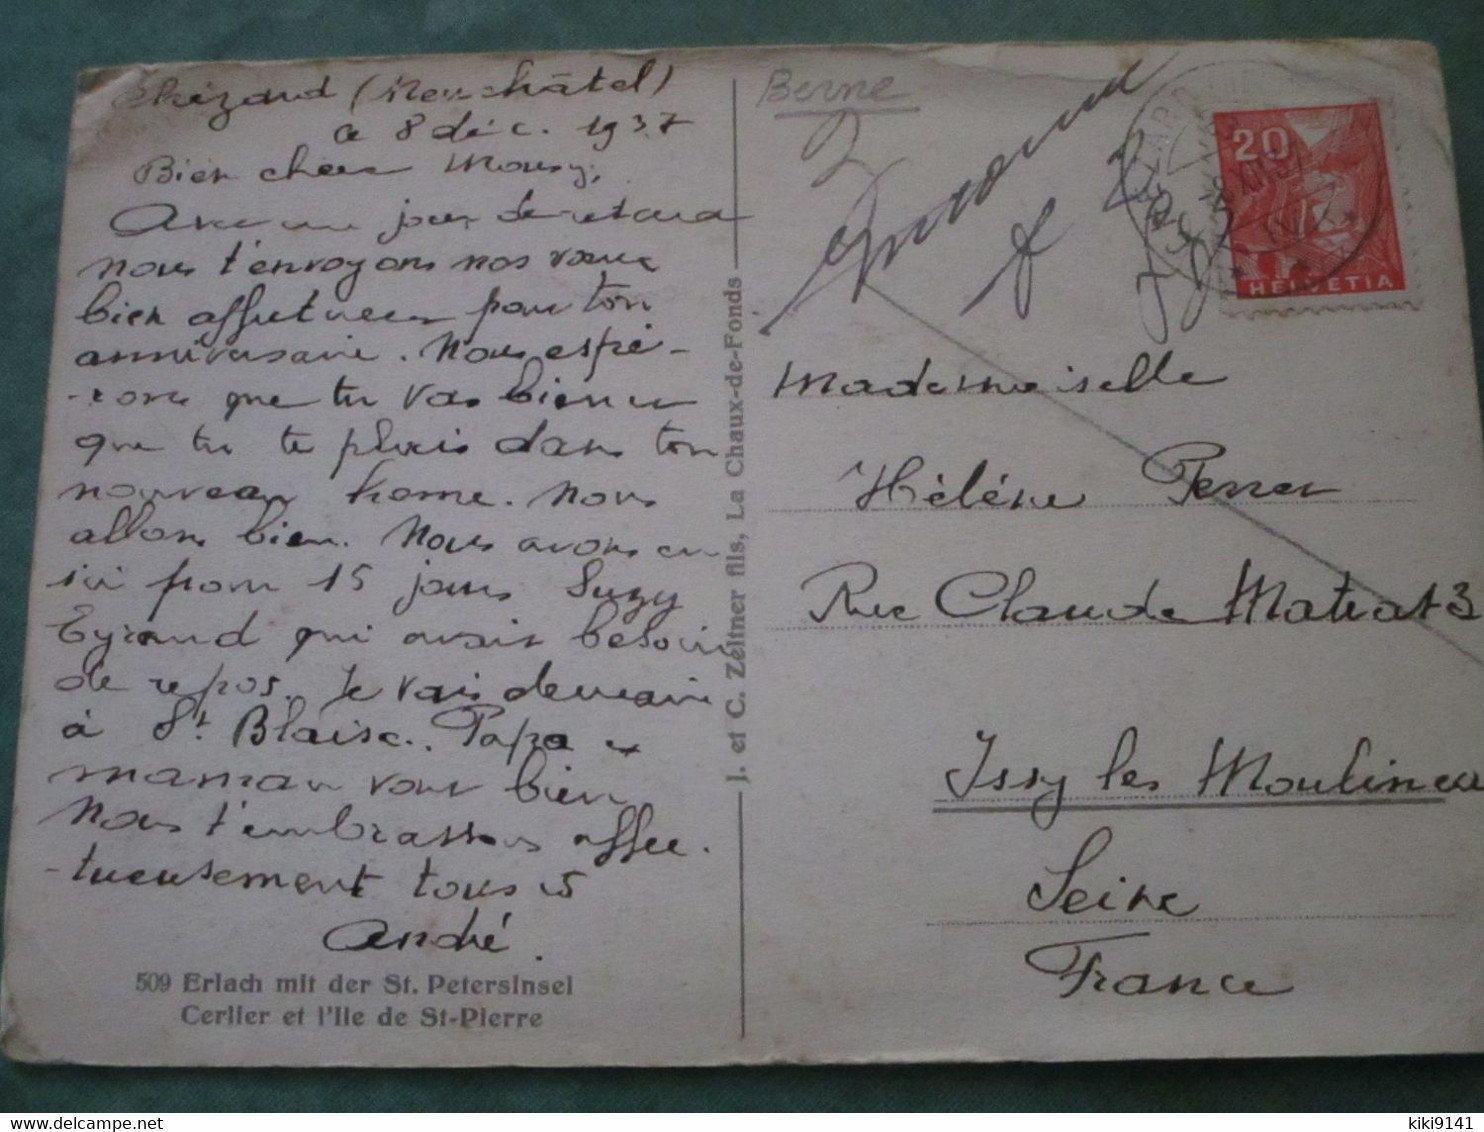 Chézard (Neuchâtel)
a 8 déc. 1937
Bien chère Mousy,
Avec un jour de retard
nous t'envoyons nos vœux
bien affectueux pour ton
anniversaire. Nous espé-
-rons que tu vas bien et
que tu te plais dans ton
nouveau home. Nous
allons bien. Nous avons eu
ici pour 15 jours Suzy
Eyraud qui avait besoin
de repos. Je vais demain
à St. Blaise. Papa et
maman vont bien
Nous t'embrassons affec.
-tueusement tous
André.
509 Erlach mit der St. Petersinsel
Cerlier et l'Ile de St-Pierre
J. et C. Zeltner fils, La Chaux-de-Fonds
Berne
2
20
HELVETIA
Mademoiselle
Hélène Perrer
Rue Claude Matrat 3
Issy les Moulineaux
Seine
France
kiki9141